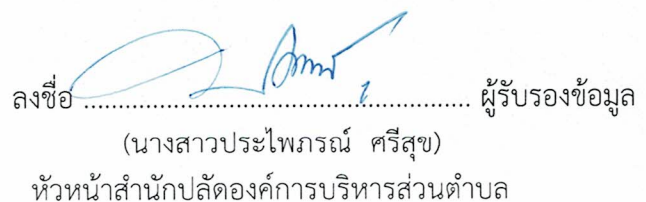 ลงชื่อ ........................................................ ผู้รับรองข้อมูล
(นางสาวประไพภรณ์ ศรีสุข)
หัวหน้าสำนักปลัดองค์การบริหารส่วนตำบล